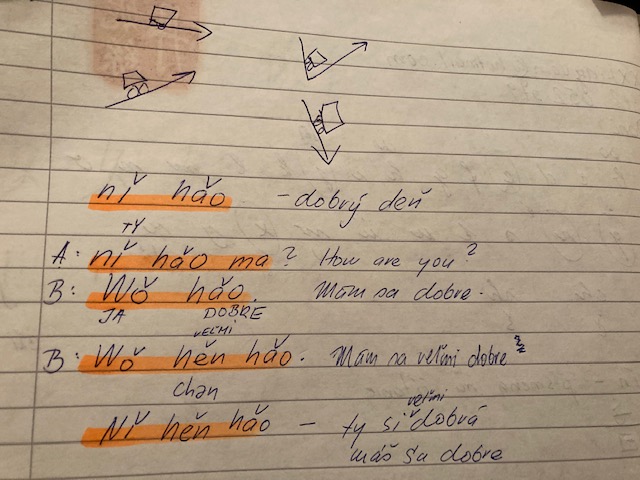 nǐ hǎo - dobrý deň
TY
A: nǐ hǎo ma? How are you?
B: Wǒ hǎo. Mám sa dobre.
JA DOBRE
VEĽMI
B: Wǒ hěn hǎo. Mám sa veľmi dobre
chən
veľmi
Nǐ hěn hǎo - ty si dobrá
máš sa dobre